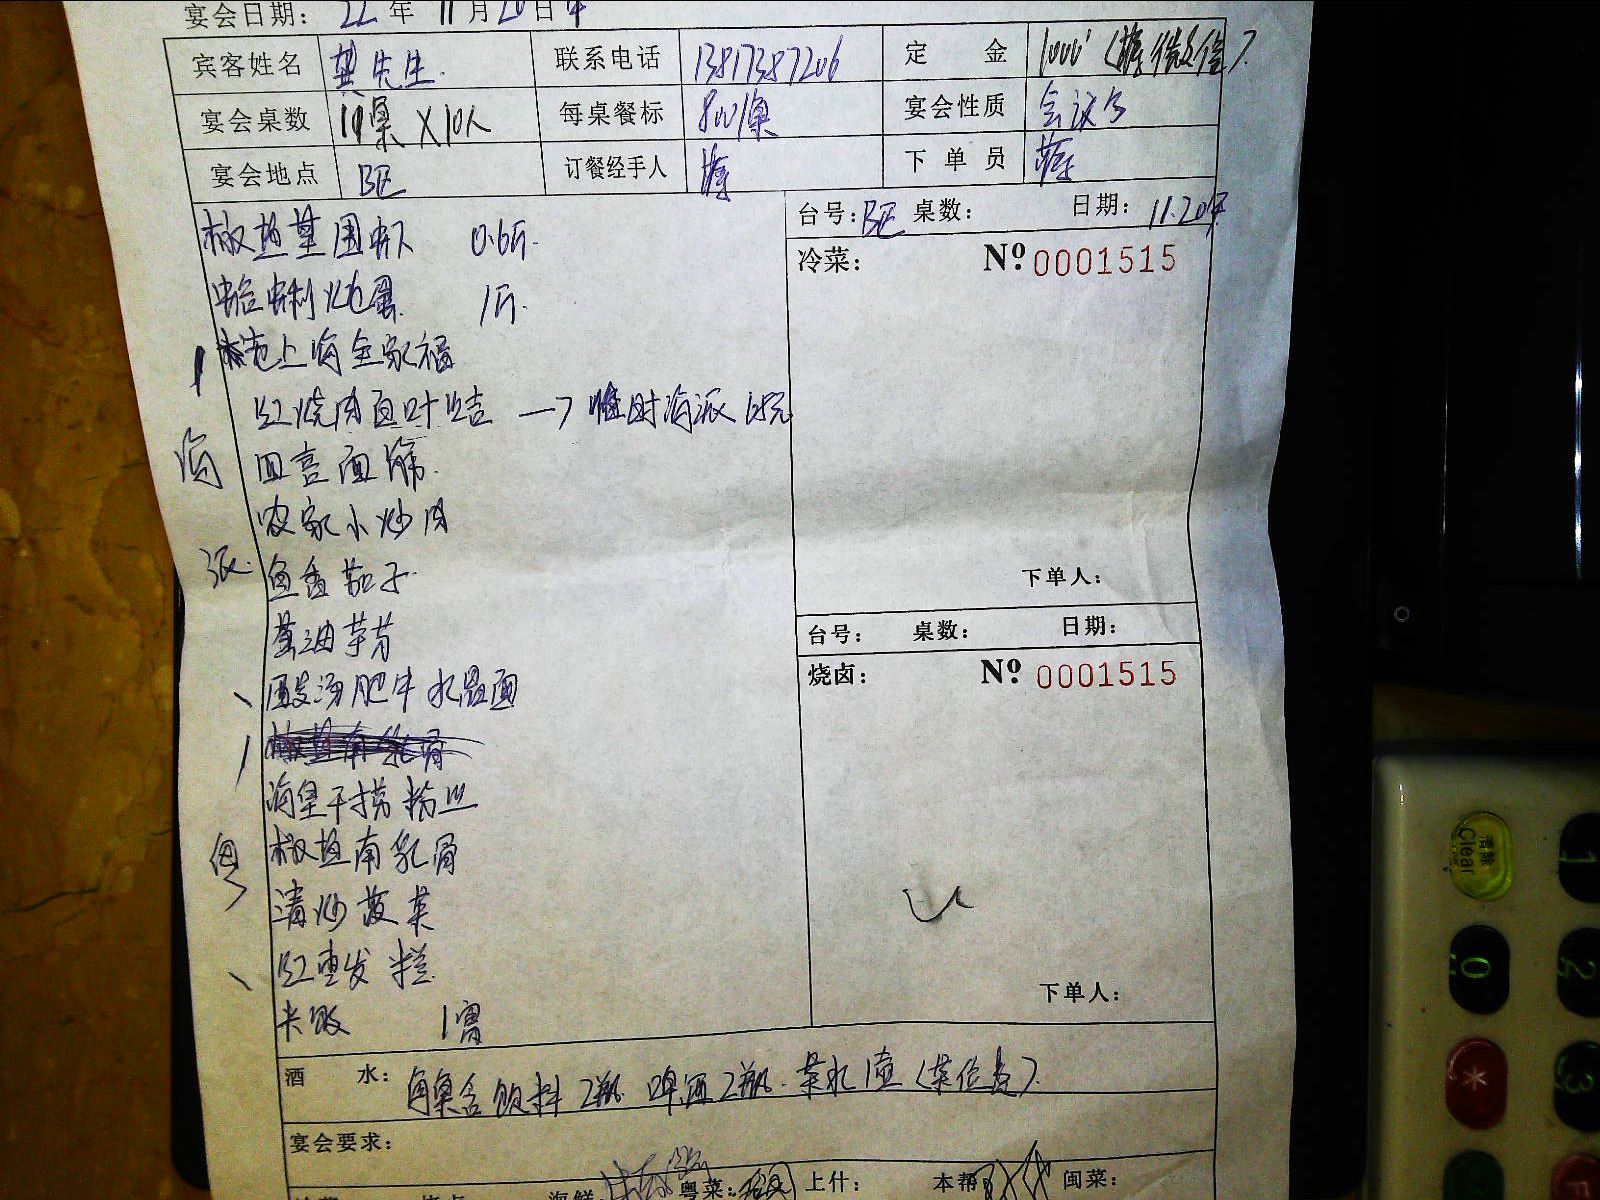 宴会日期： 22 年 11 月 20 日 午
宾客姓名 龚先生. 联系电话 13817387206 定 金 1000
宴会桌数 桌 X10人 每桌餐标 800/桌 宴会性质 会议
宴会地点 BE 订餐经手人 下单员
台号: BE 桌数: 日期: 11.20
椒盐基围虾 0.6斤.
冷菜: Nº 0001515
蛤蜊炖蛋 1斤.
上海全家福
红烧肉百叶结 → 海派
海 四喜面筋.
农家小炒肉
派 鱼香茄子
下单人:
葱油芋艿
台号: 桌数: 日期:
酸汤肥牛水晶面
烧卤: Nº 0001515
椒盐南乳骨
海皇干捞粉丝
粤 椒盐南乳骨
清炒菠菜
红枣发糕
下单人:
米饭 1窝
酒 水: 每桌含饮料2瓶 啤酒2瓶.
宴会要求:
海鲜 粤菜: 上什: 本帮 闽菜: